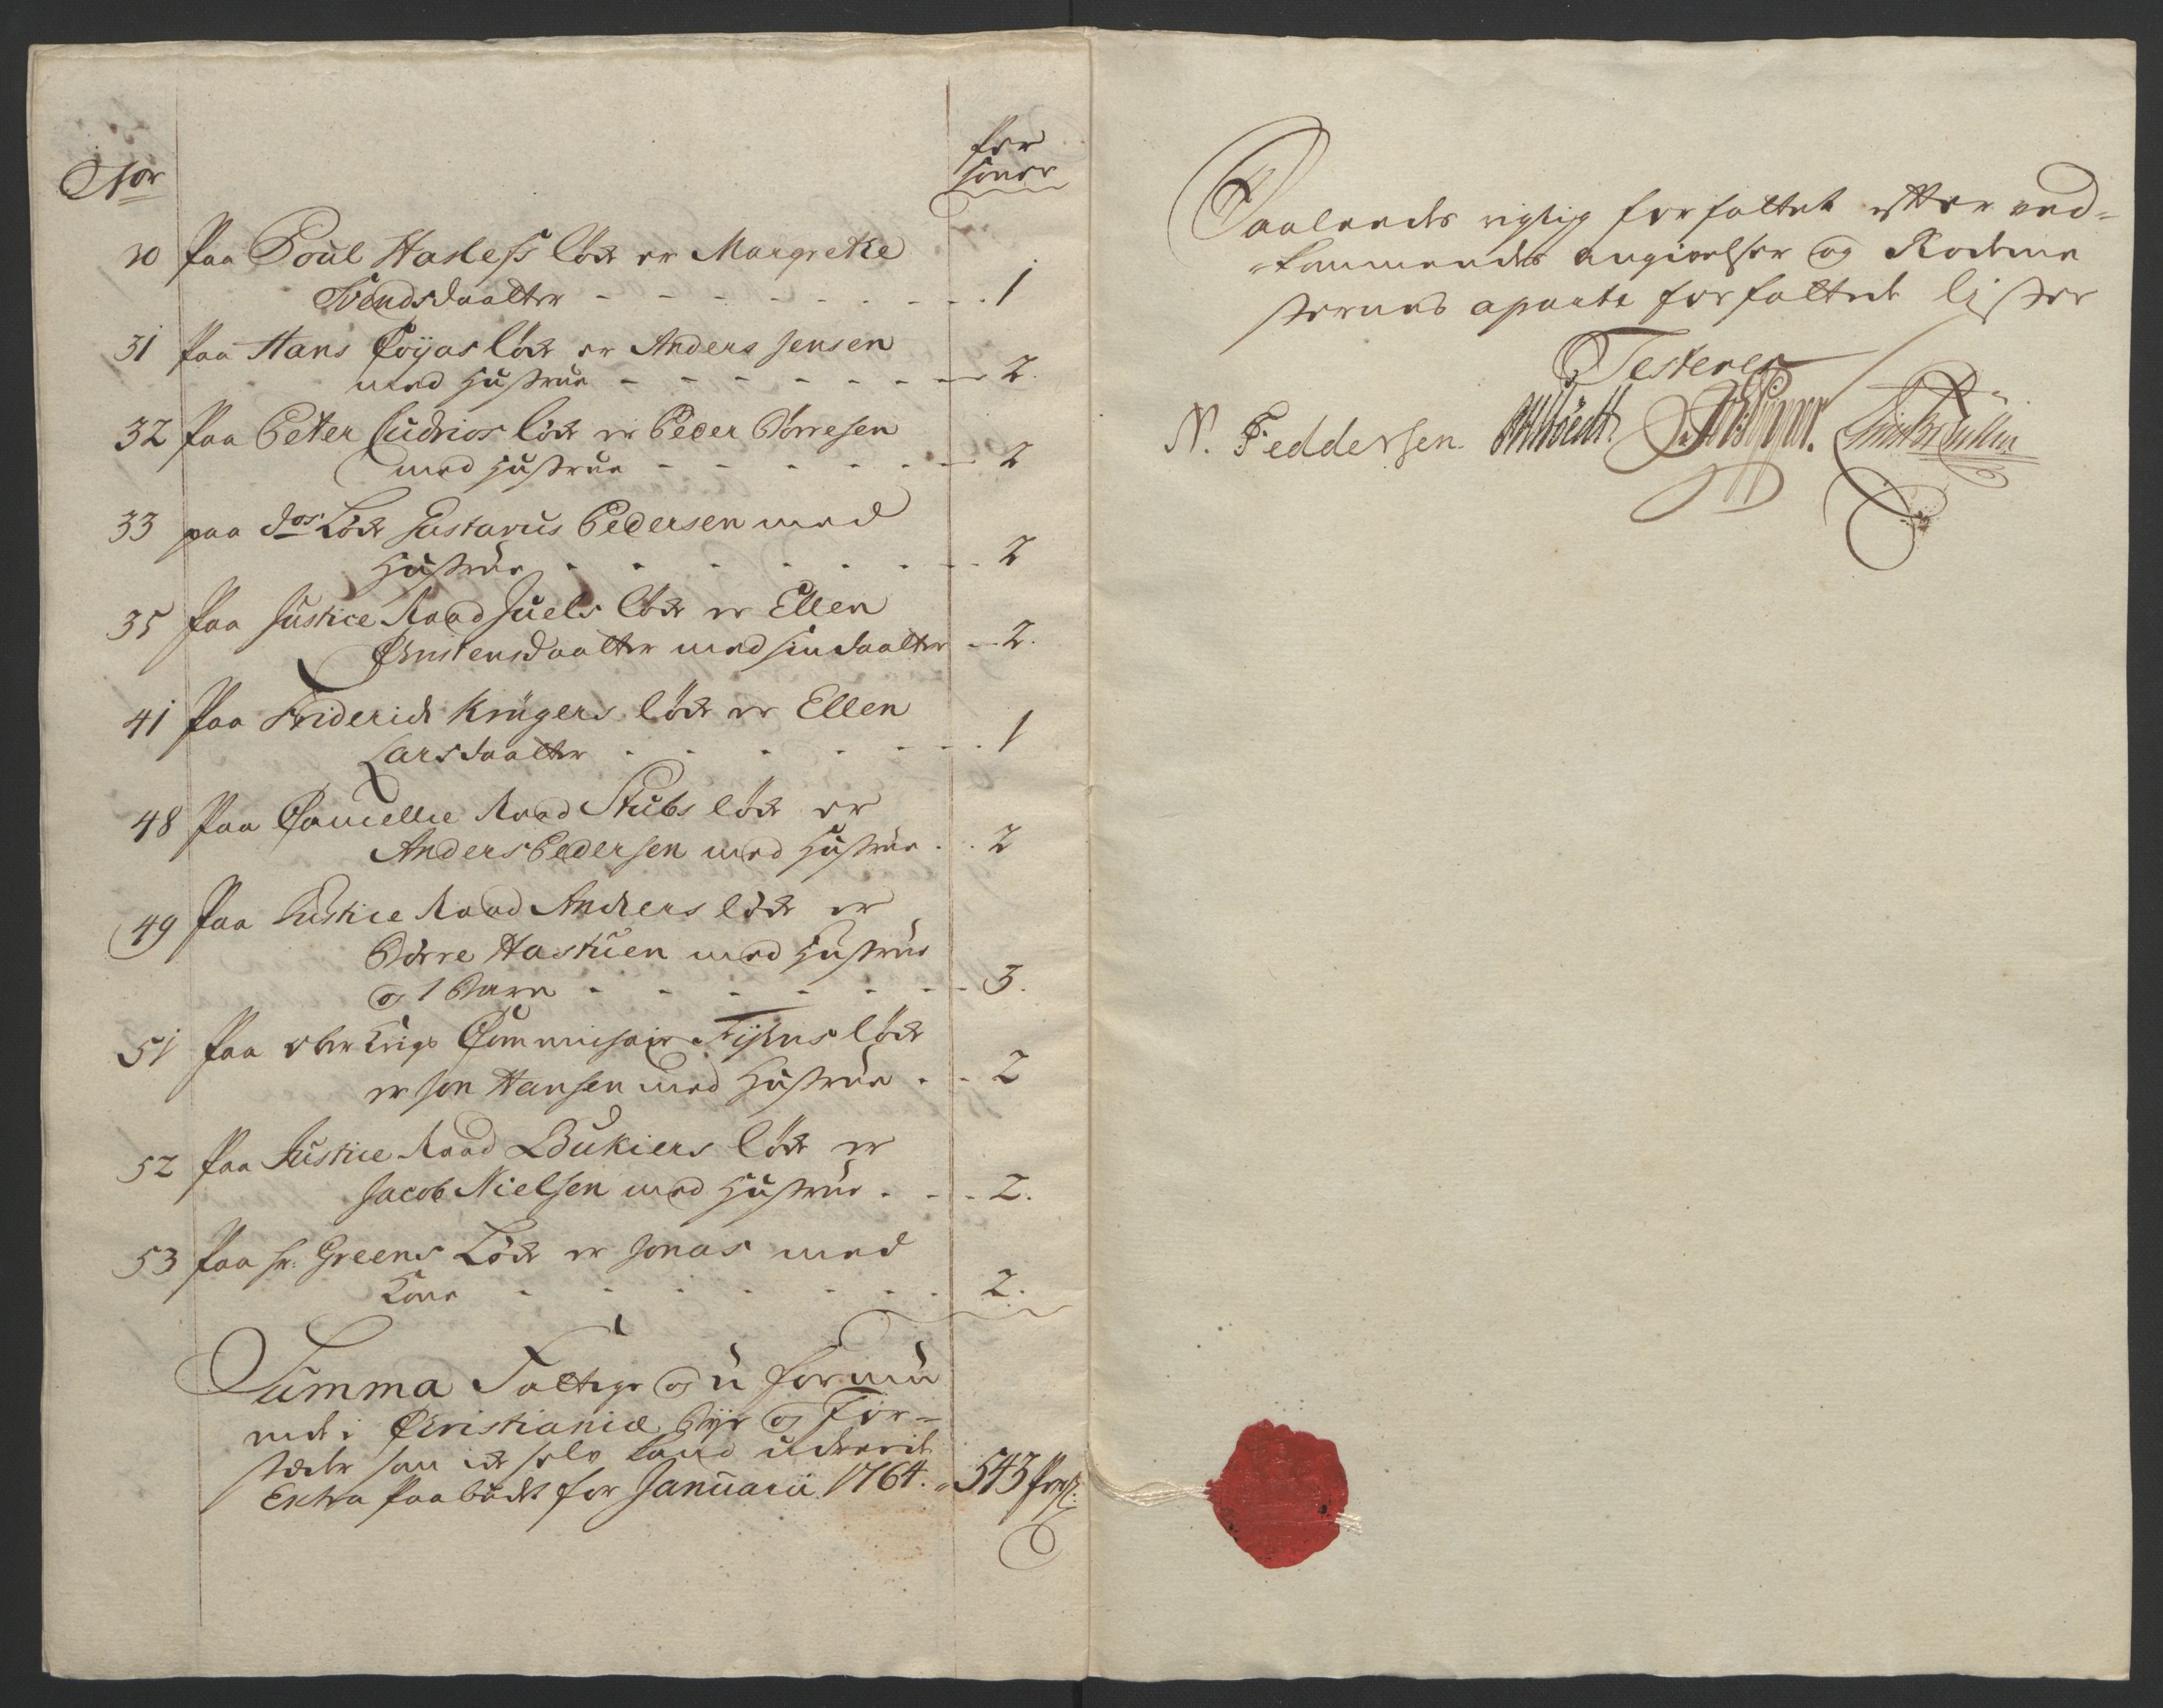 Nor
Per
soner
30 Paa Poul Haslefs löcke er Margrethe
Svendsdaatter 1
31 Paa Hans löcke er Anders Jensen
med Hustrue 2.
32 Paa Peter löcke er Peder Börresen
med Hustrue 2
33 paa dos Löcke Gustavus Pedersen med
Hustrue 2
35 Paa Justice Raad Juels löcke er Ellen
Christensdaatter med sin daatter 2.
41 Paa Friderich Krügers löcke er Ellen
Larsdaatter 1
48 Paa Cancellie Raad Stubs löcke er
Anders Pedersen med Hustrue 2
49 Paa Justice Raad Anchers löcke er
Börre Hastuen med Hustrue
og 1 Barn 3.
51 Paa Ober Krigs Commissair löcke
er Jon Hansen med Hustrue 2
52 Paa Justice Raad Bukiers löcke er
Jacob Nielsen med Hustrue 2.
53 Paa Hr. Greens Löcke er Jonas med
Kone 2.
Summa Fattige og u formu
ende i Christiania Bye og For-
stæder som icke selv kand udreede
Extra Paabudet for Januarii 1764. 543 Pers:
Saaledes rigtig forfattet efter ved-
kommendes angivelser og Rodeme
sternes aparte forfattede lister
Testerer
N. Feddersen